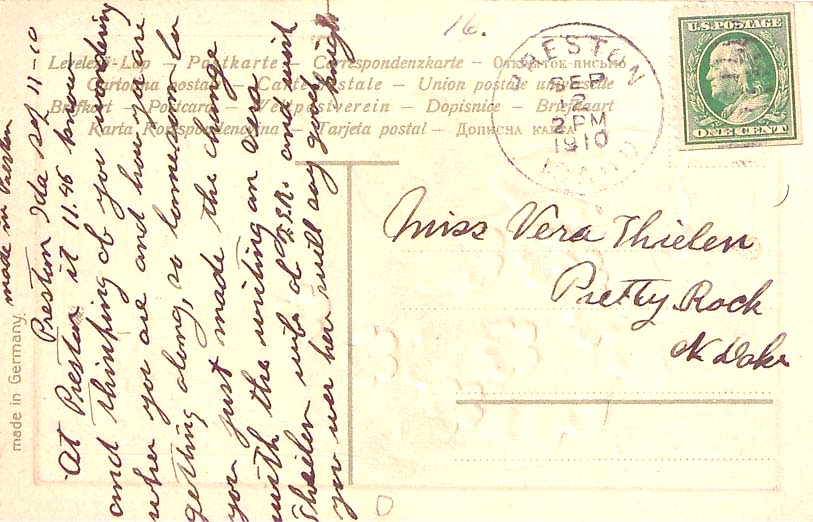 16.
PRESTON
SEP
12
2 PM
1910
IDAHO
U.S. POSTAGE
ONE CENT
Levelező-Lap – Postkarte – Correspondenzkarte – Открытое письмо
Cartolina postale – Carte postale – Union postale universelle
Briefkort – Postcard – Weltpostverein – Dopisnice – Briefkaart
Karta Korespondencyjna – Tarjeta postal – Дописна карта
Miss Vera Thielen
Pretty Rock
N Dak
made in Germany.
made in Preston
Preston Ida Sep 11-10
At Preston it 11.45 know
and thinking of you wondering
wher you are and how you are
getting along, so
you just made the change
with the writing an
and wish
you wer her will say good night